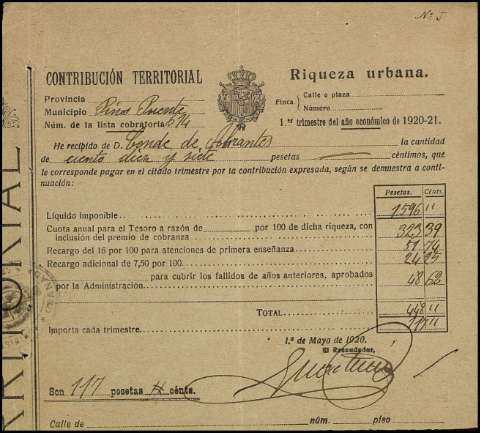 Nº 5
CONTRIBUCIÓN TERRITORIAL
Riqueza urbana.
Provincia
Municipio Pinos Puente
Núm. de la lista cobratoria 674
Finca Calle o plaza
Número
1.er trimestre del año económico de 1920-21.
He recibido de D. Conde de la cantidad
de ciento diez y siete pesetas céntimos, que
le corresponde pagar en el citado trimestre por la contribución expresada, según se demuestra a conti-
nuación:
Pesetas. Cénts
Líquido imponible 1596 "
Cuota anual para el Tesoro a razón de por 100 de dicha riqueza, con
inclusión del premio de cobranza 323 39
Recargo del 16 por 100 para atenciones de primera enseñanza 51 74
Recargo adicional de 7,50 por 100. 24 25
para cubrir los fallidos de años anteriores, aprobados
por la Administración 48 62
TOTAL 448 "
Importa cada trimestre 117 "
1.º de Mayo de 1920.
El Recaudador,
Son 117 pesetas cénts.
Calle de núm. piso